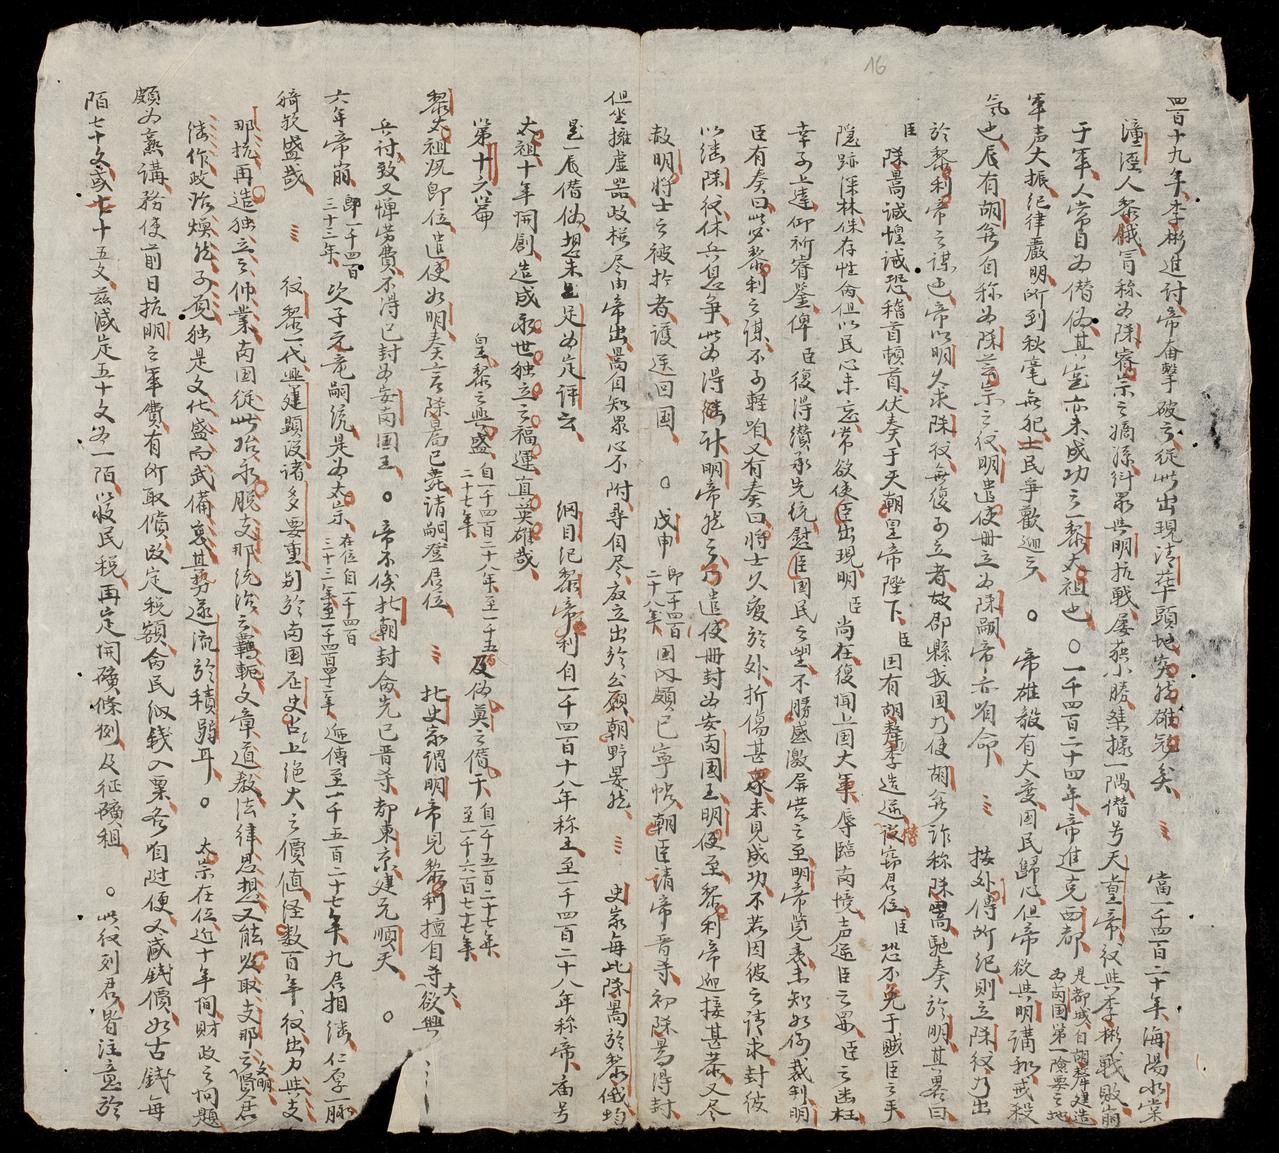 16
四百十九年李彬進討帝奮擊破之從此出現清華頭地突然雄冠矣 當一千四百二十年海陽水棠
潼涇人黎餓冐称為陳睿宗之嫡孫糾眾與明抗戰屡获小勝桀據一隅僣号天皇帝後與李彬戰敗崩
于軍人常目為僣偽其寔亦未成功之一黎太祖也 〇一千四百二十四年帝進克西都 是都城自胡釐建造為南国第一險要之地
軍声大振紀律嚴明所到秋毫無犯士民爭歡迎之 〇 帝雄毅有大度国民歸心但帝欲與明講和戒殺
氣也辰有胡翁自称為陳藝宗之後明遣使冊立為陳嗣帝亦咱命 按外傳所紀則立陳後乃出
於黎利帝之謀也帝以明久求陳後無復可立者故郡縣我国乃使胡翁詐称陳暠馳奏於明其畧曰
臣陳暠誠惶誠恐稽首頓首伏奏于天朝皇帝陛下臣国有胡釐季造逆僣窃君位臣恐不免于賊臣之手
隱跡深林保存性命但以民心未忘常欲使臣出現明臣尚在復聞上国大軍辱臨南境声逆臣之罪臣之幽枉
幸可上達仰祈睿鑒俾臣復得纘承先統慰臣国民之望不勝感激屏営之至明帝覽表未知如何裁判明
臣有奏曰此必黎利之謀不可軽咱又有奏曰將士久疲於外折傷甚眾未見成功不若因彼之请求封彼
以繼陳後休兵息爭此為得计明帝然之乃遣使冊封為安南国王明使至黎利帝迎接甚恭又尽
赦明將士之被拎者護送回国 〇 戊申 即一千四百二十八年 国内頗已寧帖朝臣請帝晋帝初陳暠得封
但坐擁虛器政權尽由帝出暠自知眾心不附尋自尽故立出於公願朝野晏然 史家每比陳暠於黎餓均
是一辰僣偽想未足為定評云 綱目紀黎帝利自一千四百十八年称王至一千四百二十八年称帝庙号
太祖十年開創造成永世独立之福運真英雄哉
第十六篇 皇黎之興盛 自一千四百二十八年至一千五百二十七年 及偽莫之僣干 自一千五百二十七年至一千六百七十七年
黎太祖既即位遣使如明奏言陳暠已薨請嗣登君位 北史家謂明帝見黎利擅自帝欲興大
兵討致又惮労費不得已封為安南国王 〇 帝不俟北朝封命先已晋帝都東京建元順天 〇
六年帝崩 即一千四百三十三年 次子元竜嗣統是為太宗 在位自一千四百三十三年至一千四百四十二年 遞傳至一千五百二十七年九君相继仁厚一脉
猗欤盛哉 後黎一代興建題設诸多要重别於南国历史占上绝大之價值怪数百年後出力與支
那抗再造独立之伸業南国從此始永脱支那統治之羈軛文章道教法律思想又能收取支那之文明賢君
继作政治燦然可覌独是文化盛而武備衰其势遂流於積弱耳 〇 太宗在位近十年間財政之问題
頗为熟講務使前日抗明之軍費有所取償改定税额令民纳錢入粟各咱随便又减錢價如古錢每
陌七十文或七十五文兹减定五十文为一陌以收民税再定開礦條例及征礦租 〇 此後列君皆注意於